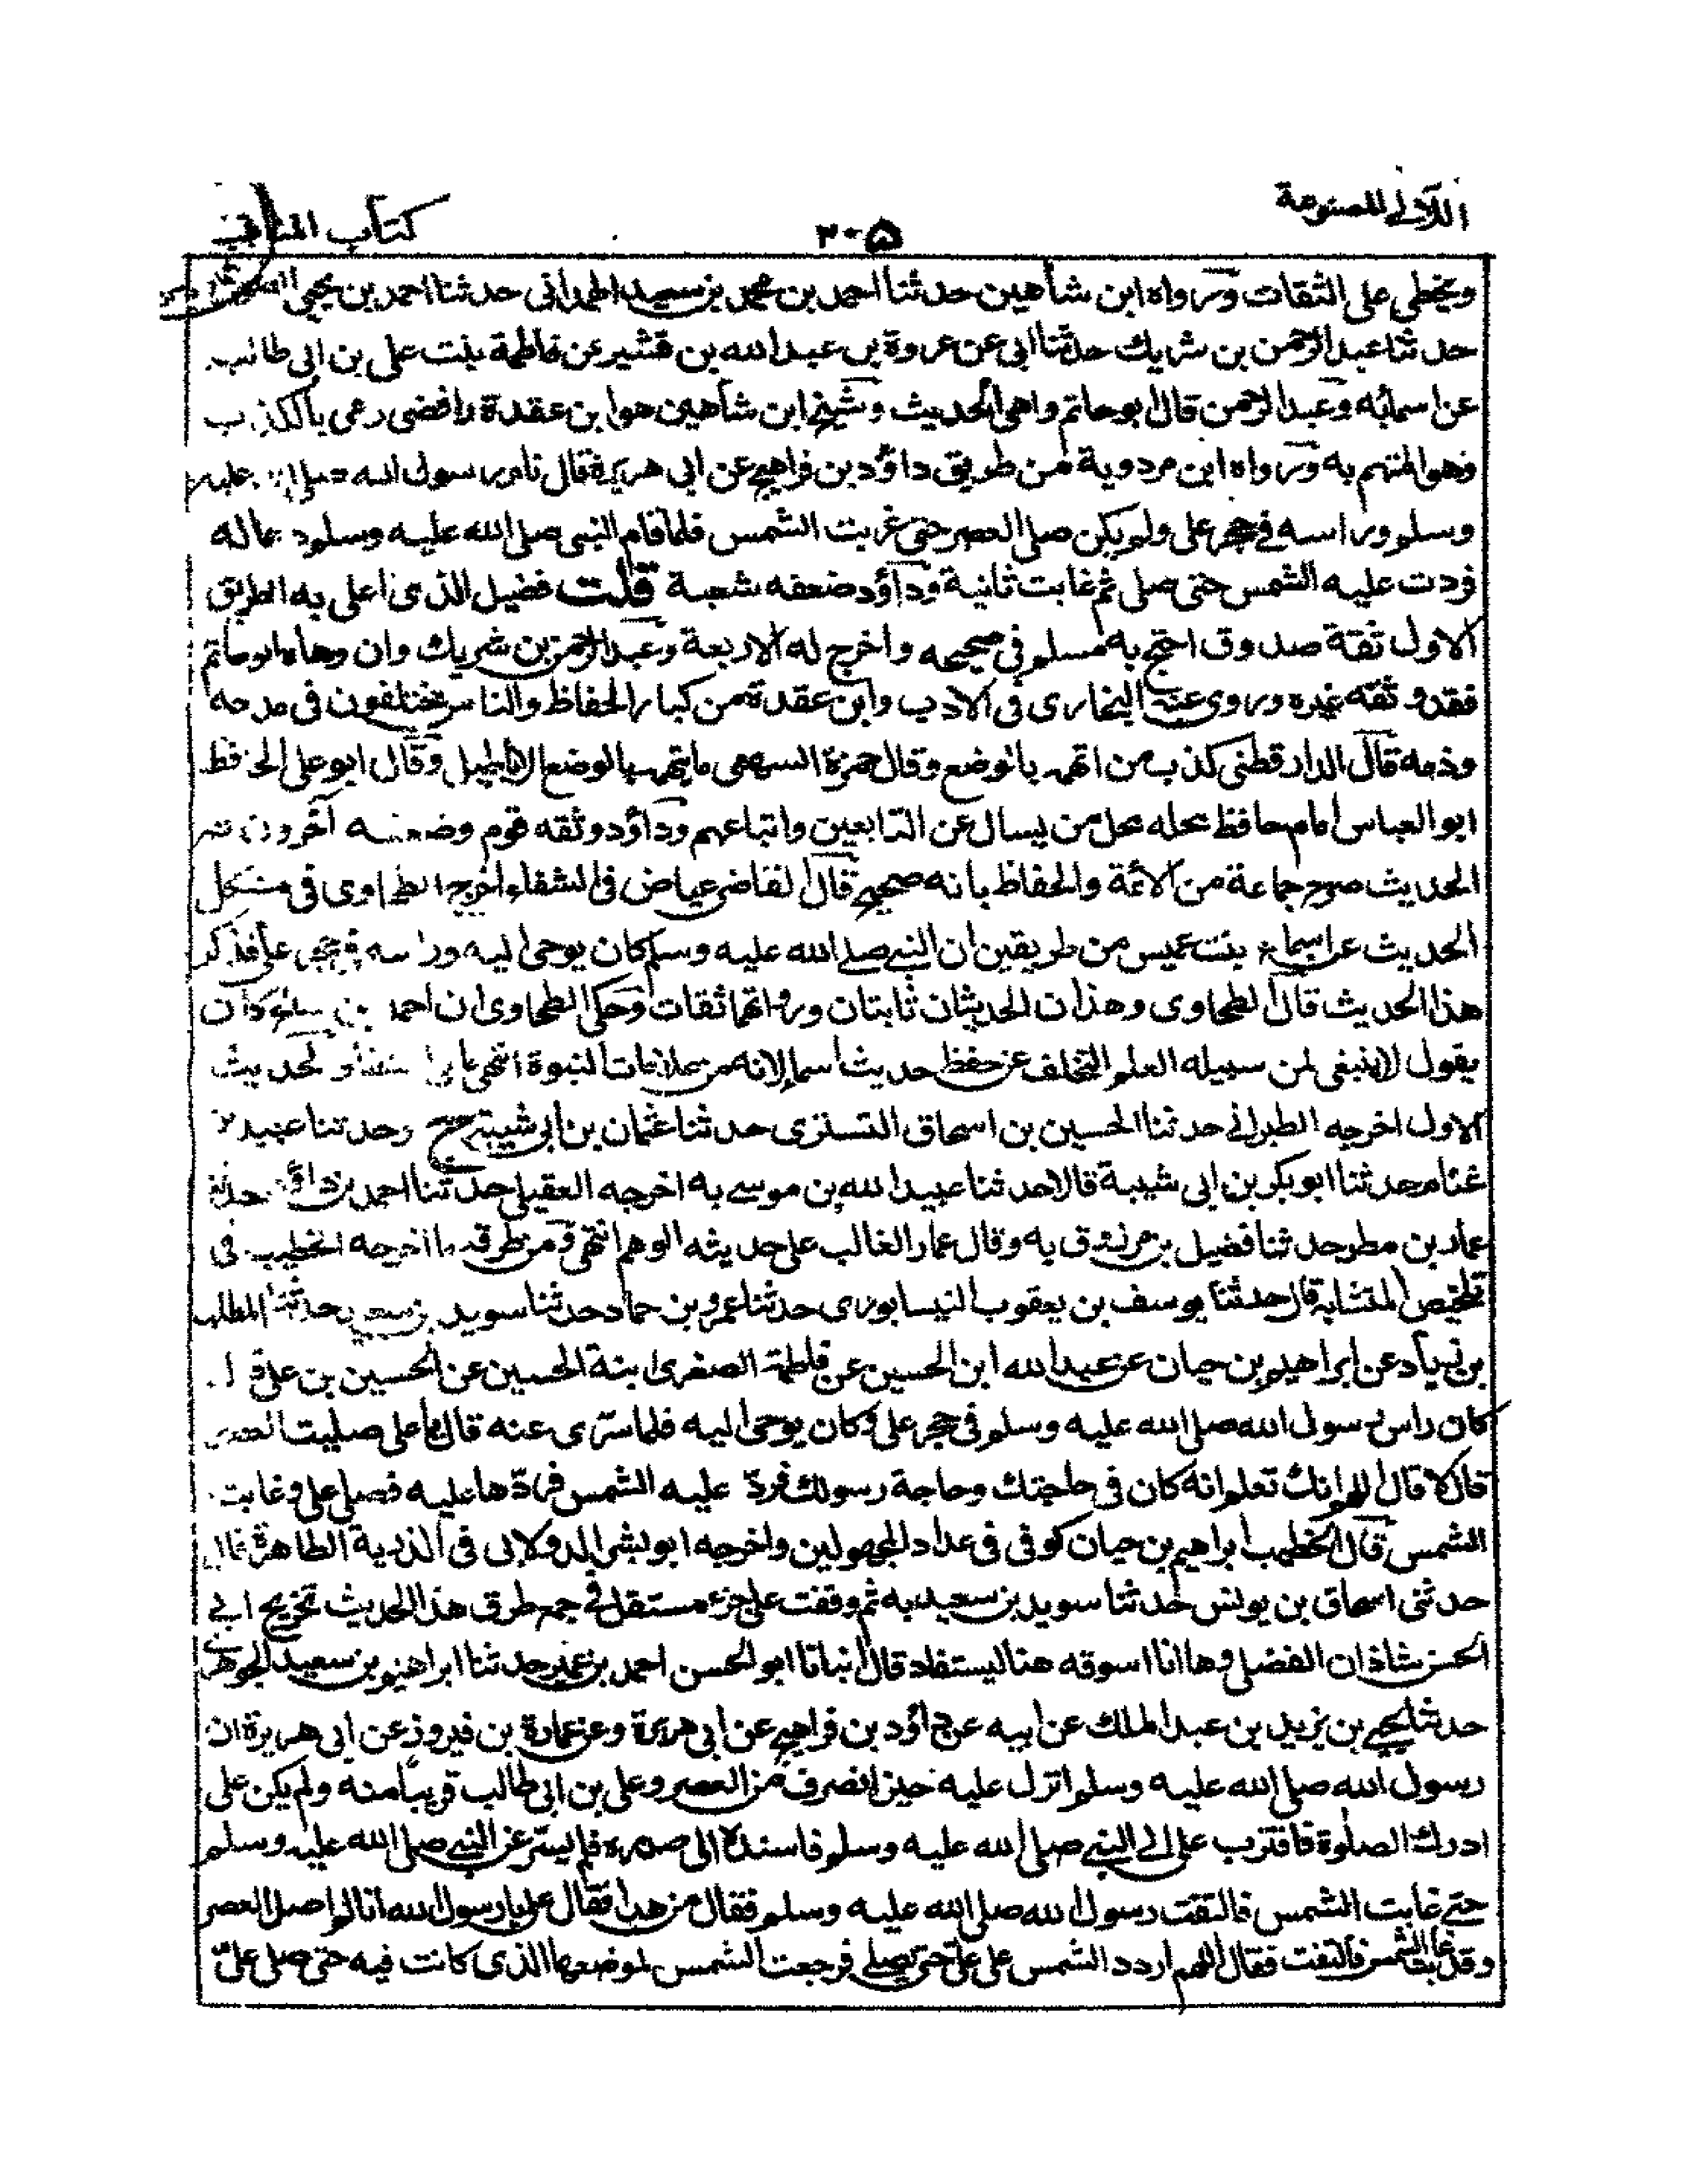 اللآلى المصنوعة
٣٠۵
كتاب المناقب
ويخطى على الثقات ورواه ابن شاهين حدثنا احمد بن محمد بن سعيد الهمدانى حدثنا احمد بن يحيى
حدثنا عبد الرحمن بن شريك حدثنا ابى عن عروة بن عبد الله بن قشير عن فاطمة بنت على بن ابى طالب
عن اسماء به وعبد الرحمن قال ابو حاتم واهى الحديث وشيخ ابن شاهين هو ابن عقدة رافضى رمى بالكذب
وهو المتهم به ورواه ابن مردوية من طريق داؤد بن فراهيج عن ابى هريرة قال نام رسول الله صلى الله عليه
وسلم وراسه فى حجر على ولم يكن صلى العصر حتى غربت الشمس فلما قام النبى صلى الله عليه وسلم دعا له
فردت عليه الشمس حتى صلى ثم غابت ثانية وداؤد ضعفه شعبة قلت فضيل الذى اعلى به الطريق
الاول ثقة صدوق احتج به مسلم فى صحيحه واخرج له الاربعة وعبد الرحمن بن شريك وان وهاه ابو حاتم
فقد وثقه غيره وروى عنه البخارى فى الادب وابن عقدة من كبار الحفاظ والناس يختلفون فى مدحه
وذمه قال الدارقطنى كذب من اتهمه بالوضع وقال حمزة السهمى ما يتهمه بالوضع الا طبل وقال ابو على الحافظ
ابو العباس امام حافظ محله محل من يسال عن التابعين واتباعهم وداؤد وثقه قوم وضعفه آخرون ثم
الحديث صرح جماعة من الائمة والحفاظ بانه صحيح قال القاضى عياض فى الشفاء اخرج الطحاوى فى مشكل
الحديث عن اسماء بنت عميس من طريقين ان النبى صلى الله عليه وسلم كان يوحى اليه وراسه فى حجر على فذكر
هذا الحديث قال الطحاوى وهذان الحديثان ثابتان ورواتهما ثقات وحكى الطحاوى ان احمد بن صالح كان
يقول لا ينبغى لمن سبيله العلم التخلف عن حفظ حديث اسماء لانه من علامات النبوة انتهى ما فى الشفاء والحديث
الاول اخرجه الطبرانى حدثنا الحسين بن اسحاق التسترى حدثنا عثمان بن ابى شيبة ح وحدثنا عبيد بن
غنام حدثنا ابو بكر بن ابى شيبة قالا حدثنا عبيد الله بن موسى به اخرجه العقيلى حدثنا احمد بن داؤد حدثنا
عمار بن مطر حدثنا فضيل بن مرزوق به وقال عمار الغالب على حديثه الوهم انتهى ومن طرقه ما اخرجه الخطيب فى
تلخيص المتشابه قال حدثنا يوسف بن يعقوب النيسابورى حدثنا عمرو بن حماد حدثنا سويد بن سعيد حدثنا المطلب
بن زياد عن ابراهيم بن حيان عن عبد الله ابن الحسين عن فاطمة الصغرى ابنة الحسين عن الحسين بن على قال
كان راس رسول الله صلى الله عليه وسلم فى حجر على وكان يوحى اليه فلما سرّى عنه قال يا على صليت العصر
قال لا قال اللهم انك تعلم انه كان فى حاجتك وحاجة رسولك فردّ عليه الشمس فردّها عليه فصلى على وغابت
الشمس قال الخطيب ابراهيم بن حيان كوفى فى عداد المجهولين واخرجه ابو بشر الدولابى فى الذرية الطاهرة قال
حدثنى اسحاق بن يونس حدثنا سويد بن سعيد به ثم وقفت على جزء مستقل فى جمع طرق هذا الحديث تخريج ابى
الحسن شاذان الفضلى وها انا اسوقه هنا ليستفاد قال انبانا ابو الحسن احمد بن عمير حدثنا ابراهيم بن سعيد الجوهرى
حدثنا يحيى بن يزيد بن عبد الملك عن ابيه عن داؤد بن فراهيج عن ابى هريرة وعن عمارة بن فيروز عن ابى هريرة ان
رسول الله صلى الله عليه وسلم انزل عليه حين انصرف من العصر وعلى بن ابى طالب قريبا منه ولم يكن على
ادرك الصلوة فاقترب على الى النبى صلى الله عليه وسلم فاسنده الى صدره فلم يسرّ عن النبى صلى الله عليه وسلم
حتى غابت الشمس فالتفت رسول الله صلى الله عليه وسلم فقال من هذا فقال على يا رسول الله انا لم اصل العصر
وقد غابت الشمس فالتفت فقال اللهم اردد الشمس على علىّ حتى يصلى فرجعت الشمس لموضعها الذى كانت فيه حتى صلى علىّ